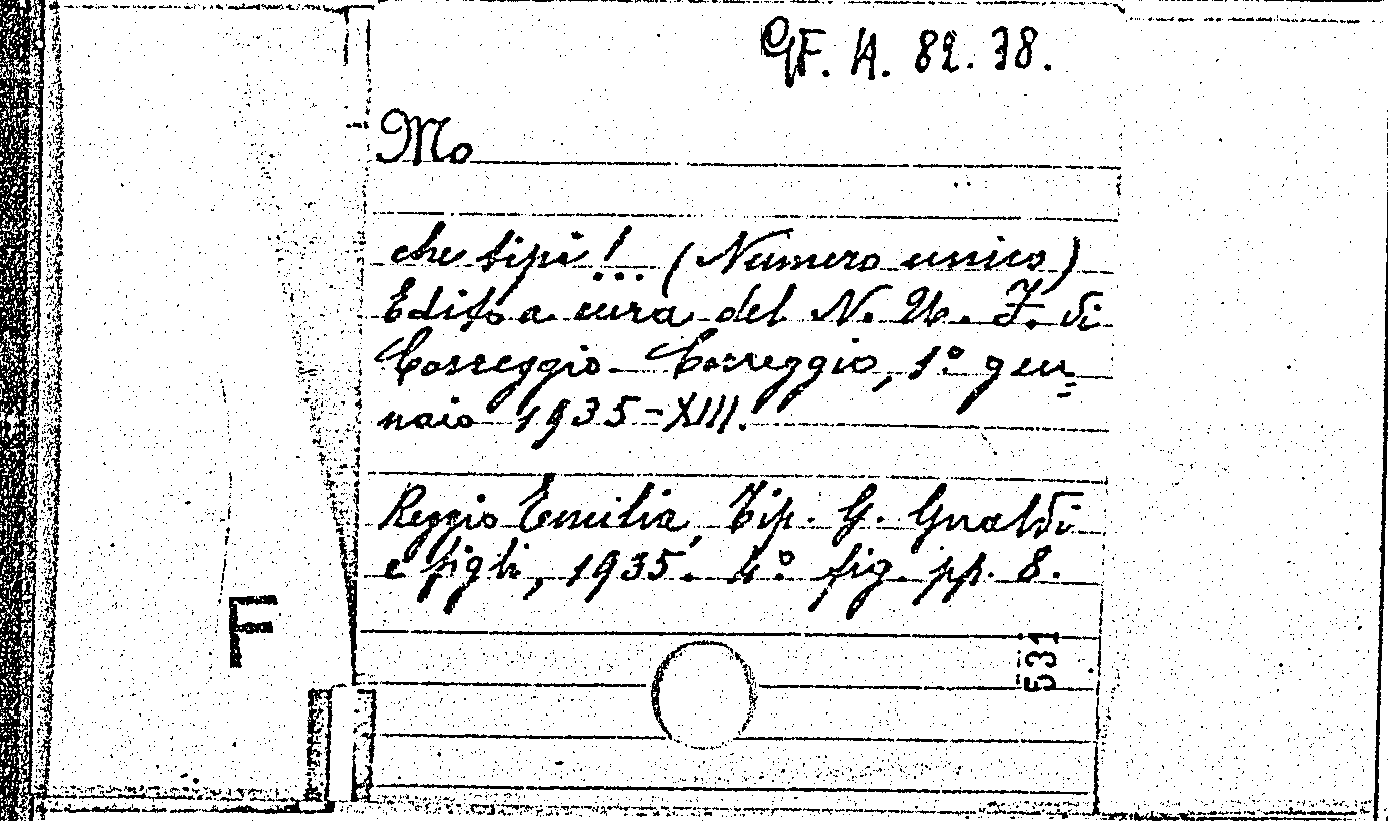 GF. A. 82. 38.
Mo
che tipi!... (Numero unico)
Edito a cura del N. U. F. di
Correggio - Correggio, 1° gen=
naio 1935-XIII.
Reggio Emilia, Tip. G. Gualdi
e figli, 1935. 4° fig. pp. 8.
F
531